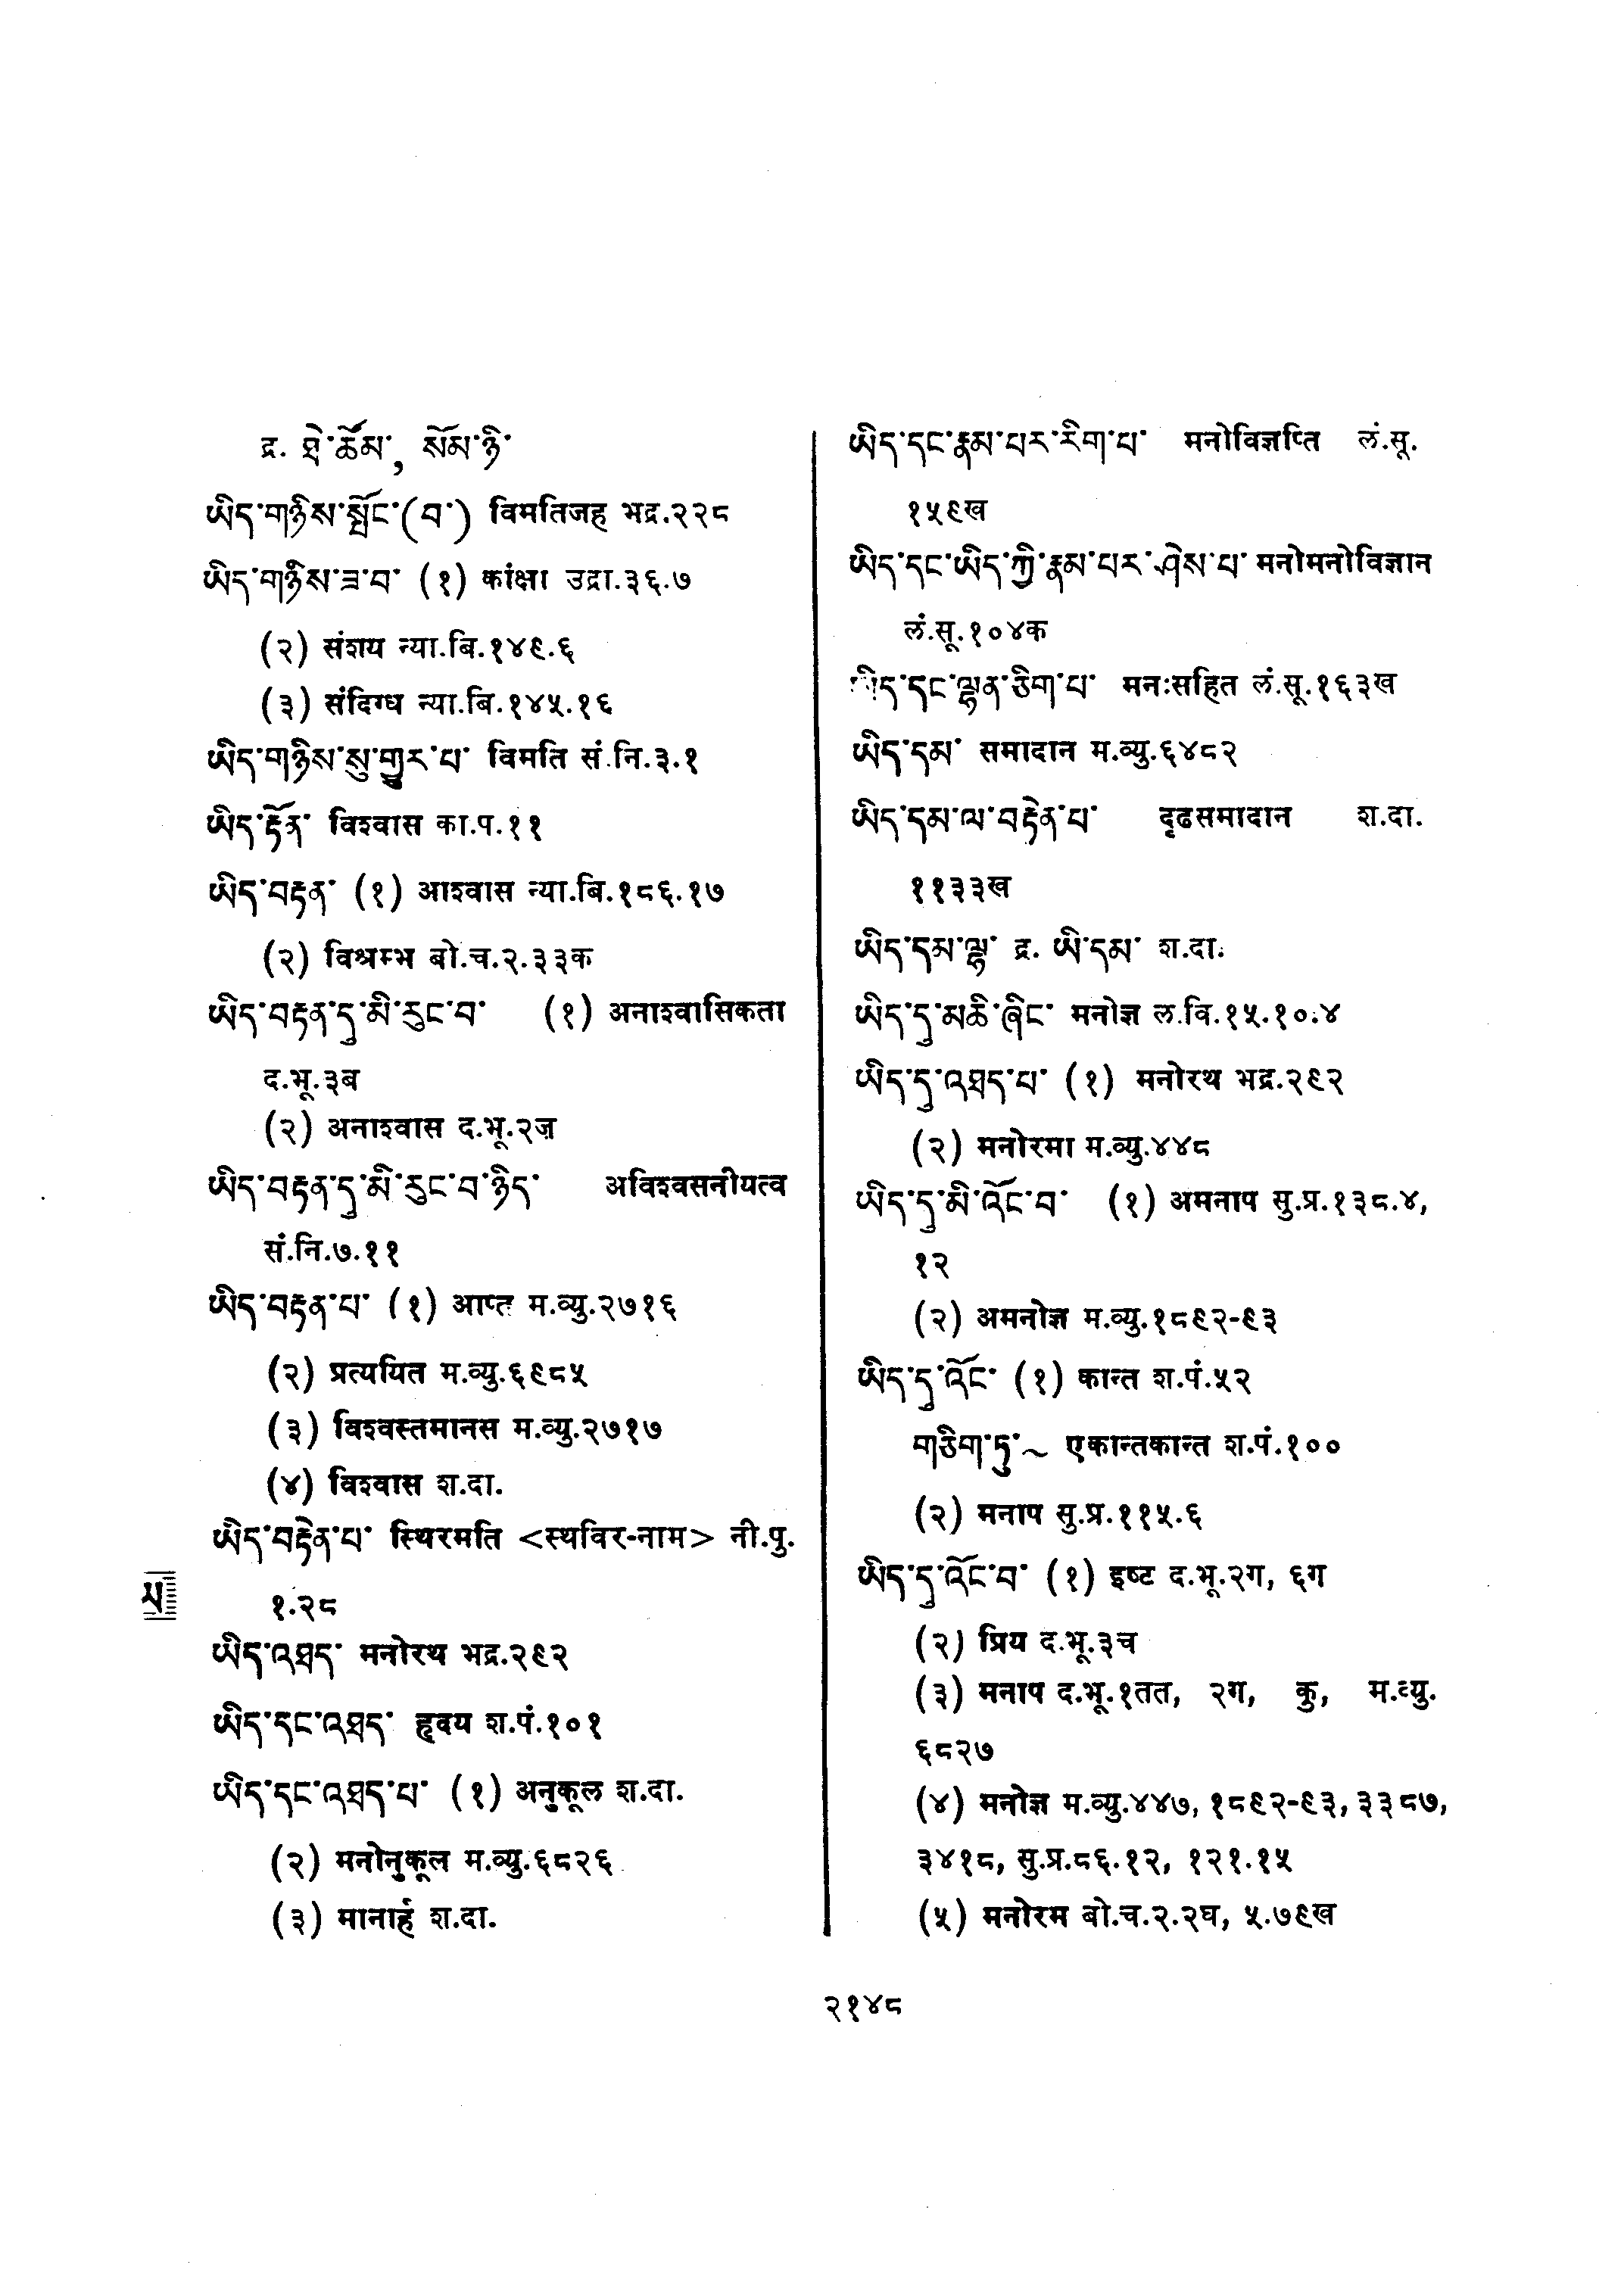 द्र. ཐེ་ཚོམ་, སོམ་ཉི་
ཡིད་གཉིས་སྤོང་(བ་) विमतिजह भद्र.२२८
ཡིད་གཉིས་ཟ་བ་ (१) कांक्षा उद्रा.३६.७
(२) संशय न्या.बि.१४९.६
(३) संदिग्ध न्या.बि.१४५.१६
ཡིད་གཉིས་སུ་གྱུར་པ་ विमति सं.नि.३.१
ཡིད་རྟོན་ विश्वास का.प.११
ཡིད་བརྟན་ (१) आश्वास न्या.बि.१८६.१७
(२) विश्रम्भ बो.च.२.३३क
ཡིད་བརྟན་དུ་མི་རུང་བ་ (१) अनाश्वासिकता
द.भू.३ब
(२) अनाश्वास द.भू.२ज़
ཡིད་བརྟན་དུ་མི་རུང་བ་ཉིད་ अविश्वसनीयत्व
सं.नि.७.११
ཡིད་བརྟན་པ་ (१) आप्त म.व्यु.२७१६
(२) प्रत्ययित म.व्यु.६९८५
(३) विश्वस्तमानस म.व्यु.२७१७
(४) विश्वास श.दा.
ཡིད་བརྟེན་པ་ स्थिरमति <स्थविर-नाम> नी.पु.
१.२८
ཡིད་འཐད་ मनोरथ भद्र.२९२
ཡིད་དང་འཐད་ हृदय श.पं.१०१
ཡིད་དང་འཐད་པ་ (१) अनुकूल श.दा.
(२) मनोनुकूल म.व्यु.६८२६
(३) मानार्ह श.दा.
ཡ
ཡིད་དང་རྣམ་པར་རིག་པ་ मनोविज्ञप्ति लं.सू.
१५९ख
ཡིད་དང་ཡིད་ཀྱི་རྣམ་པར་ཤེས་པ་ मनोमनोविज्ञान
लं.सू.१०४क
ཡིད་དང་ལྷན་ཅིག་པ་ मनःसहित लं.सू.१६३ख
ཡིད་དམ་ समादान म.व्यु.६४८२
ཡིད་དམ་ལ་བརྟེན་པ་ दृढसमादान श.दा.
११३३ख
ཡིད་དམ་ལྷ་ द्र. ཡི་དམ་ श.दा.
ཡིད་དུ་མཆི་ཞིང་ मनोज्ञ ल.वि.१५.१०.४
ཡིད་དུ་འཐད་པ་ (१) मनोरथ भद्र.२९२
(२) मनोरमा म.व्यु.४४८
ཡིད་དུ་མི་འོང་བ་ (१) अमनाप सु.प्र.१३८.४,
१२
(२) अमनोज्ञ म.व्यु.१८९२-९३
ཡིད་དུ་འོང་ (१) कान्त श.पं.५२
གཅིག་ཏུ་~ एकान्तकान्त श.पं.१००
(२) मनाप सु.प्र.११५.६
ཡིད་དུ་འོང་བ་ (१) इष्ट द.भू.२ग, ६ग
(२) प्रिय द.भू.३च
(३) मनाप द.भू.१तत, २ग, कु, म.व्यु.
६८२७
(४) मनोज्ञ म.व्यु.४४७, १८९२-९३, ३३८७,
३४१८, सु.प्र.८६.१२, १२१.१५
(५) मनोरम बो.च.२.२घ, ५.७९ख
२१४८